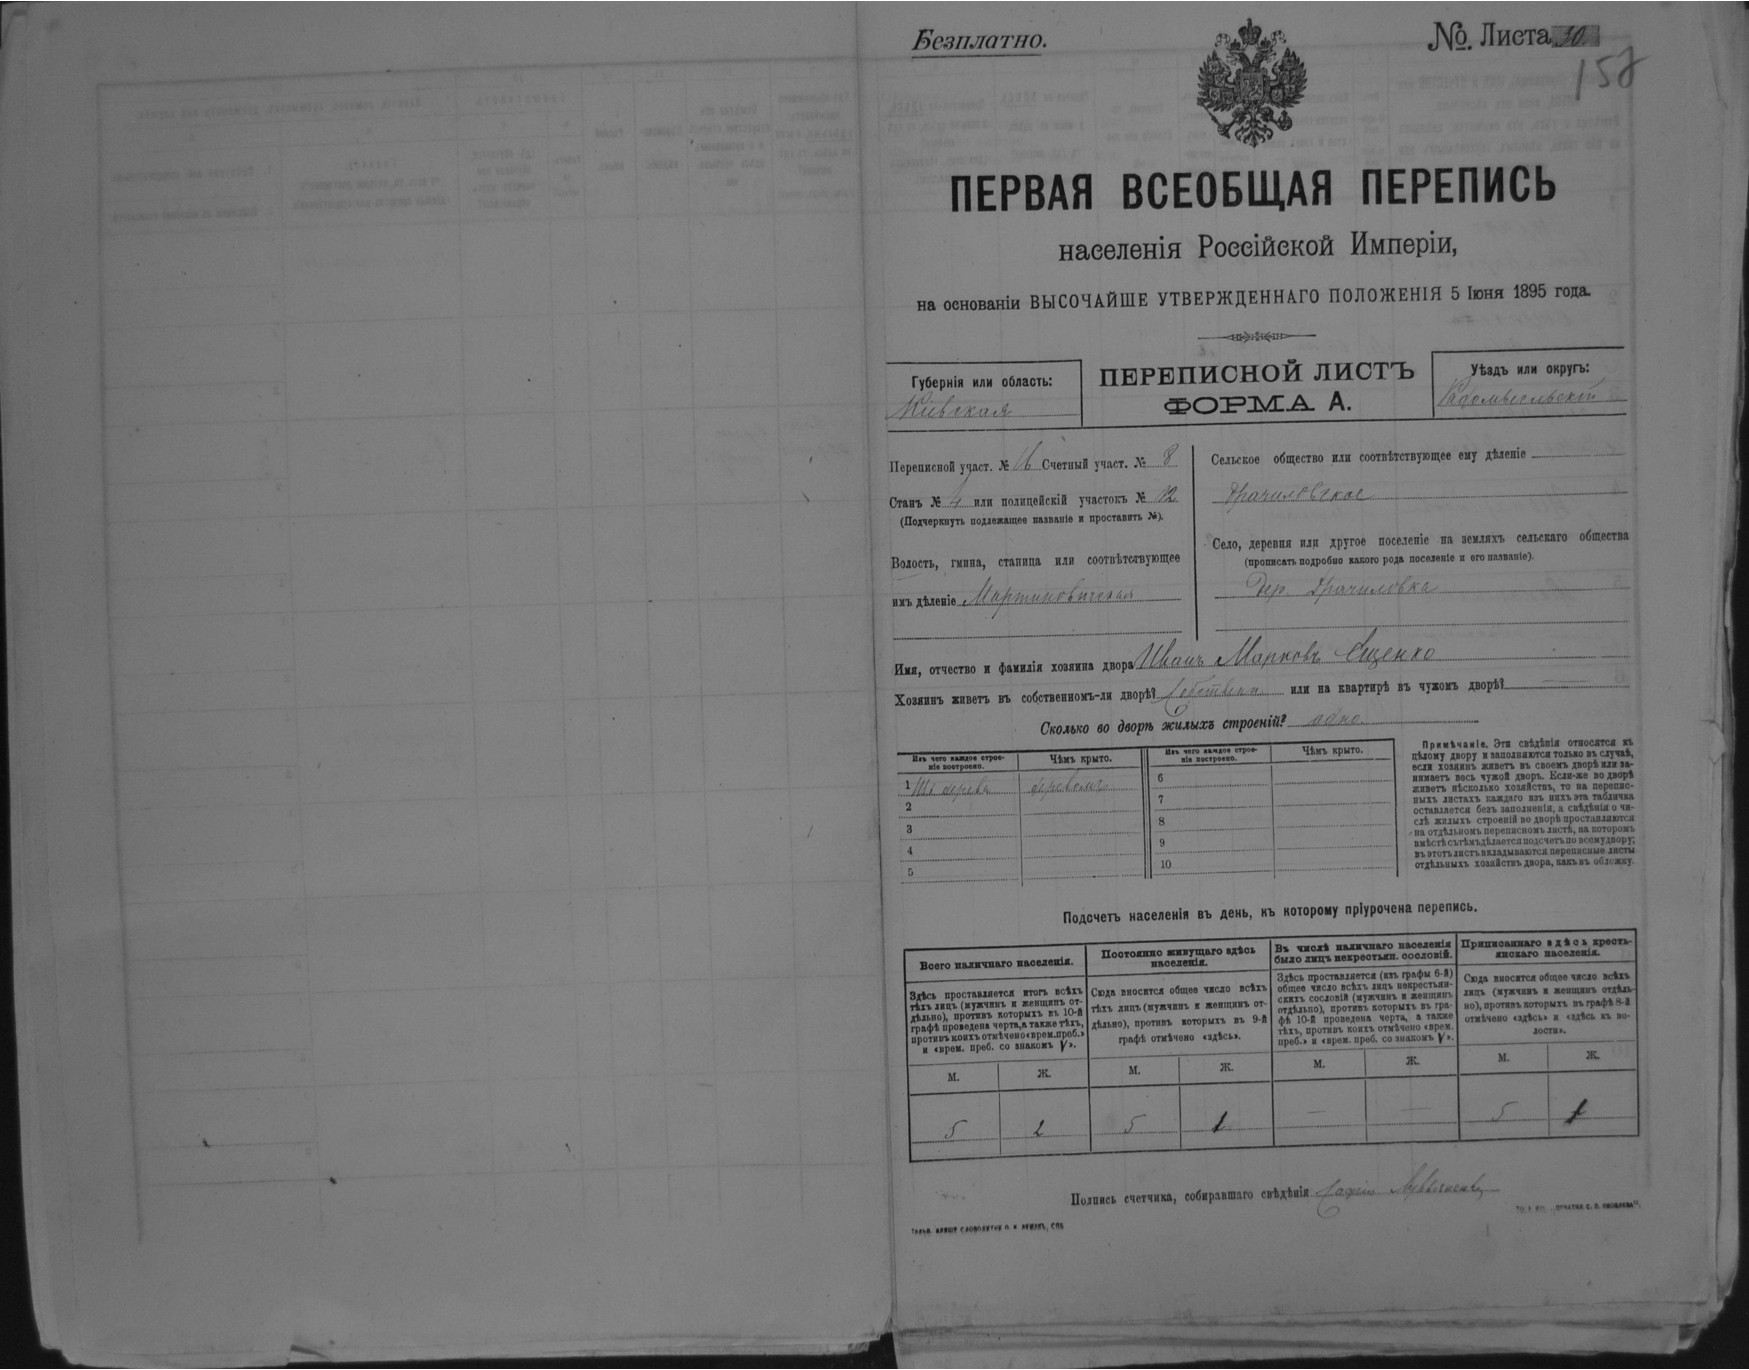 Безплатно.
№. Листа 30.
158
ПЕРВАЯ ВСЕОБЩАЯ ПЕРЕПИСЬ
населенія Россійской Имперіи,
на основаніи ВЫСОЧАЙШЕ УТВЕРЖДЕННАГО ПОЛОЖЕНІЯ 5 Іюня 1895 года.
Губернія или область:
Кіевская
ПЕРЕПИСНОЙ ЛИСТЪ
ФОРМА А.
Уѣздъ или округъ:
Радомысльскій
Переписной участ. № 16 Счетный участ. № 8
Станъ № 4 или полицейскій участокъ № 12
(Подчеркнуть подлежащее названіе и проставить №).
Волость, гмина, станица или соотвѣтствующее
имъ дѣленіе Мартиновичская
Сельское общество или соотвѣтствующее ему дѣленіе
Драчиловское
Село, деревня или другое поселеніе на земляхъ сельскаго общества
(прописать подробно какого рода поселеніе и его названіе).
Дер. Драчиловка
Имя, отчество и фамилія хозяина двора Иванъ Марковъ Ещенко
Хозяинъ живетъ въ собственномъ-ли дворѣ? Собствен или на квартирѣ въ чужомъ дворѣ? —
Сколько во дворѣ жилыхъ строеній? одно
Изъ чего каждое строе-
ніе построено.
Чѣмъ крыто.
1 Изъ дерева деревомъ
2
3
4
5
Изъ чего каждое строе-
ніе построено.
Чѣмъ крыто.
6
7
8
9
10
Примѣчаніе. Эти свѣдѣнія относятся къ
цѣлому двору и заполняются только въ случаѣ,
если хозяинъ живетъ въ своемъ дворѣ или за-
нимаетъ весь чужой дворъ. Если-же во дворѣ
живетъ нѣсколько хозяйствъ, то на перепис-
ныхъ листахъ каждаго изъ нихъ эта табличка
оставляется безъ заполненія, а свѣдѣнія о чи-
слѣ жилыхъ строеній во дворѣ проставляются
на отдѣльномъ переписномъ листѣ, на которомъ
вмѣстѣ съ тѣмъ дѣлается подсчетъ по всему двору;
въ этотъ листъ вкладываются переписные листы
отдѣльныхъ хозяйствъ двора, какъ въ обложку.
Подсчетъ населенія въ день, къ которому пріурочена перепись.
Всего наличнаго населенія.
Здѣсь проставляется итогъ всѣхъ
тѣхъ лицъ (мужчинъ и женщинъ от-
дѣльно), противъ которыхъ въ 10-й
графѣ проведена черта, а также тѣхъ,
противъ коихъ отмѣчено «врем. преб.»
и «врем. преб. со знакомъ V».
Постоянно живущаго здѣсь
населенія.
Сюда вносится общее число всѣхъ
тѣхъ лицъ (мужчинъ и женщинъ от-
дѣльно), противъ которыхъ въ 9-й
графѣ отмѣчено «здѣсь».
Въ числѣ наличнаго населенія
было лицъ некрестьян. сословій.
Здѣсь проставляется (изъ графы 6-й)
общее число всѣхъ лицъ некрестьян-
скихъ сословій (мужчинъ и женщинъ
отдѣльно), противъ которыхъ въ гра-
фѣ 10-й проведена черта, а также
тѣхъ, противъ коихъ отмѣчено «врем.
преб.» и «врем. преб. со знакомъ V».
Приписаннаго здѣсь кресть-
янскаго населенія.
Сюда вносится общее число всѣхъ
лицъ (мужчинъ и женщинъ отдѣль-
но), противъ которыхъ въ графѣ 8-й
отмѣчено «здѣсь» и «здѣсь къ во-
лости».
М. Ж. М. Ж. М. Ж. М. Ж.
5 2 5 1 — — 5 1
Подпись счетчика, собиравшаго свѣдѣнія